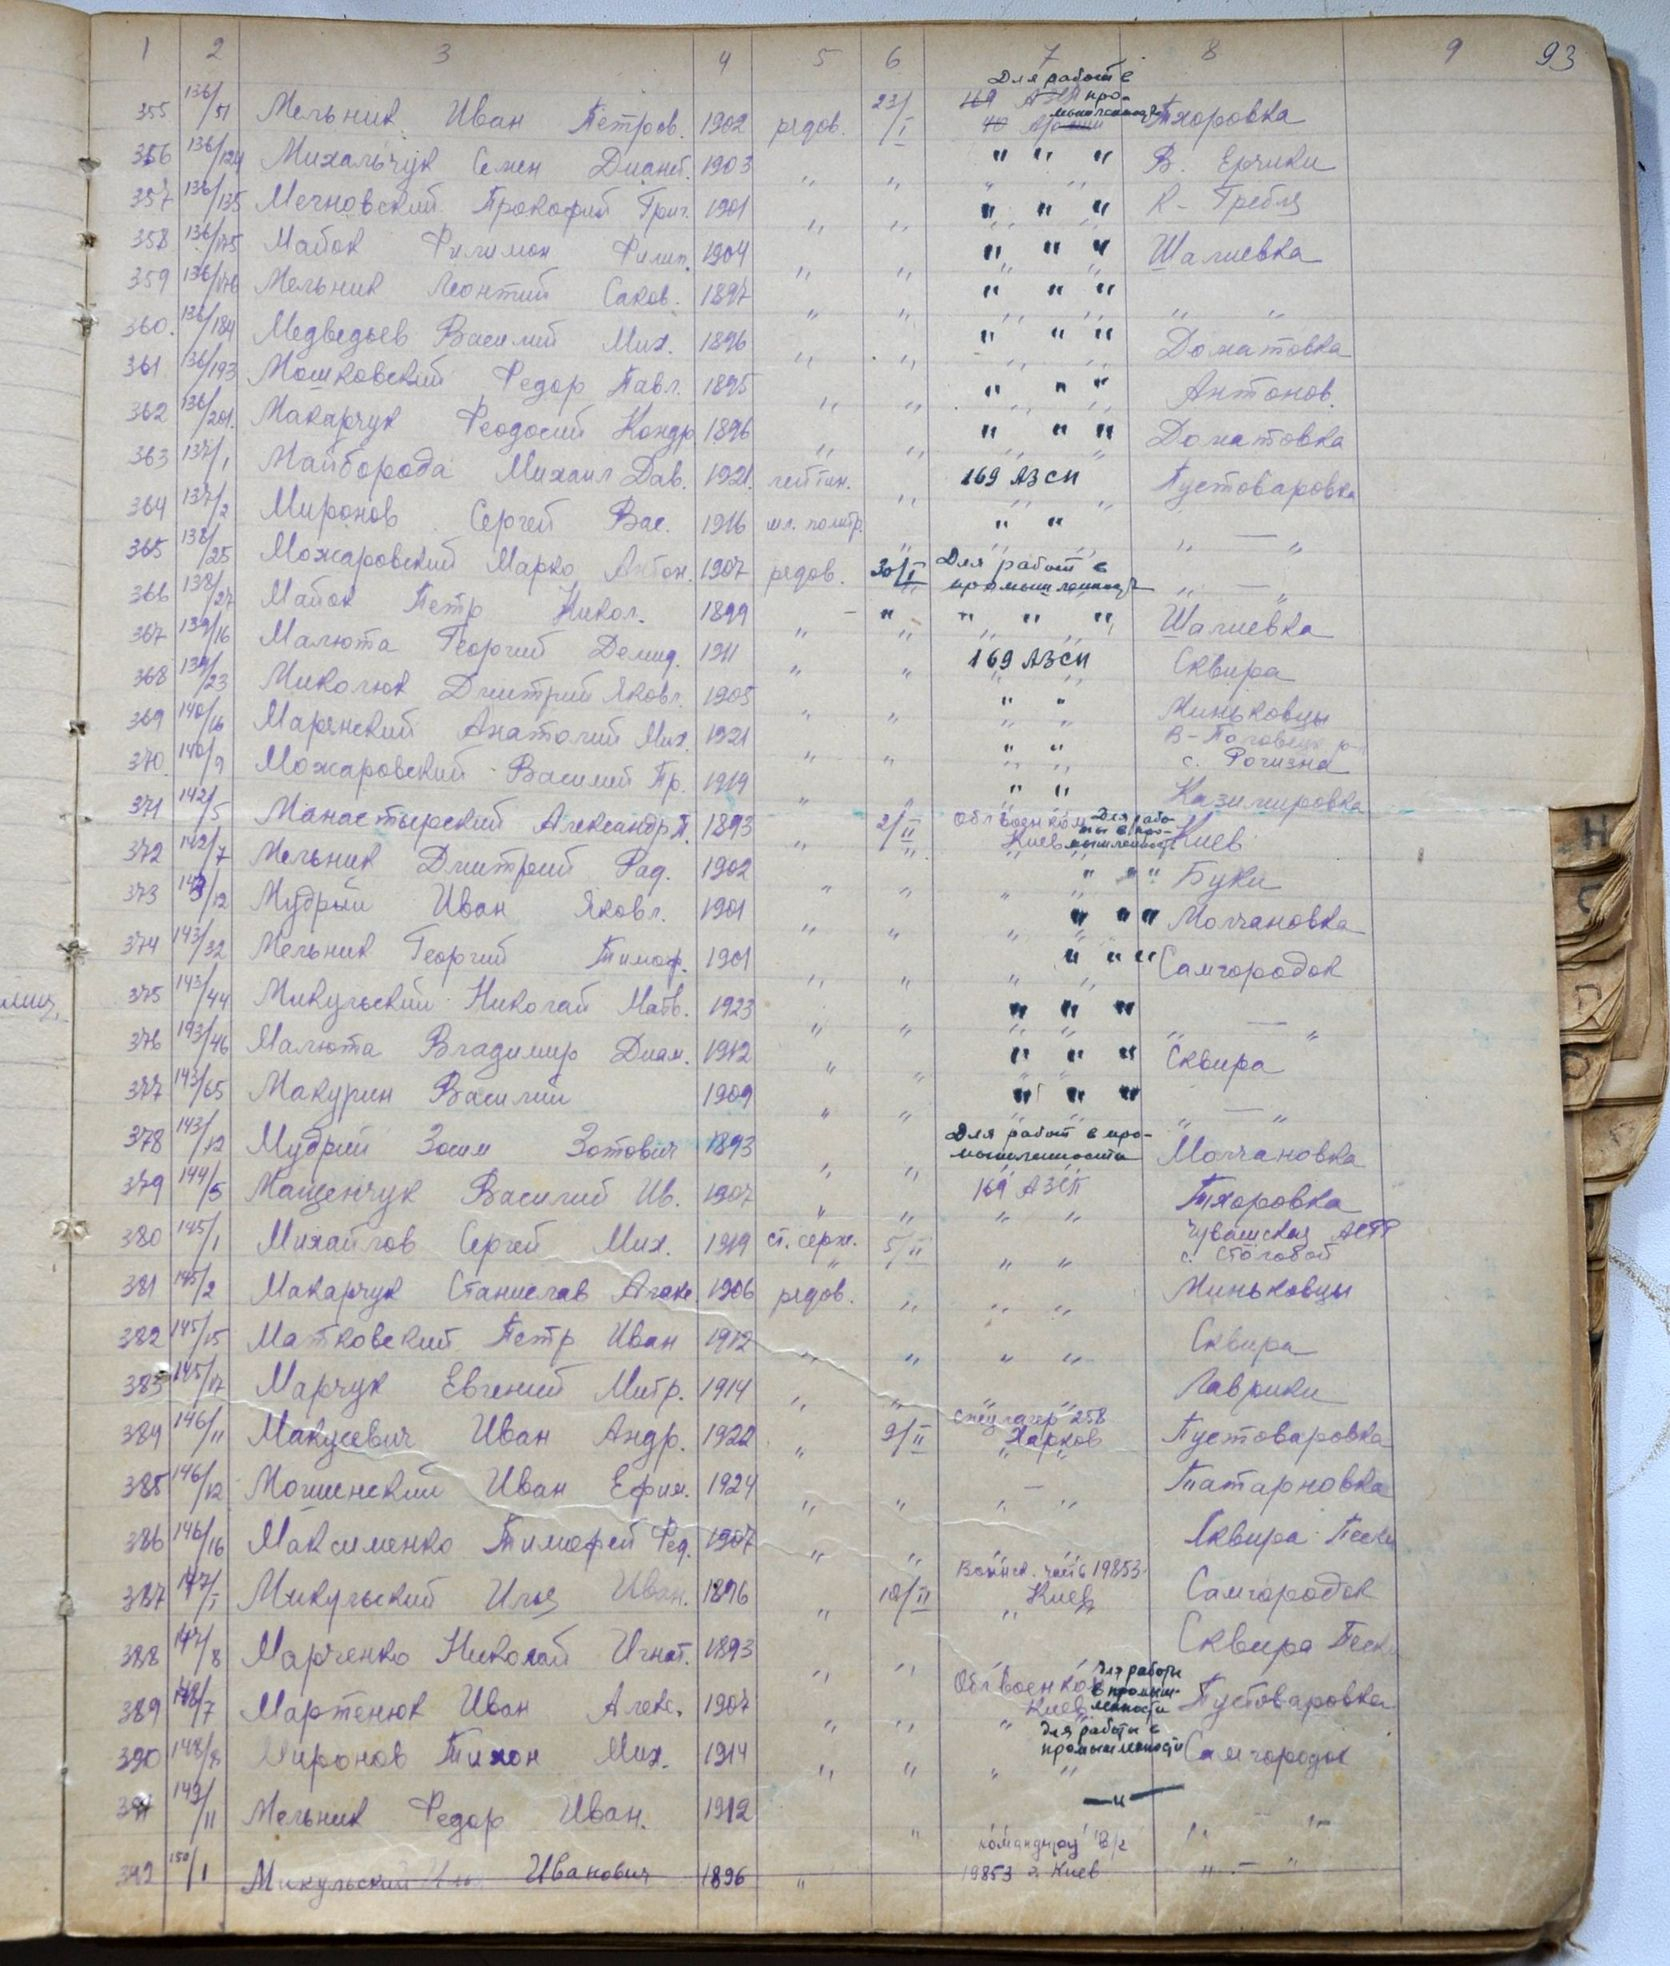 1 2 3 4 5 6 7 8 9 93
Для работ в
355 136/51 Мельник Иван Петров. 1902 рядов. 23/I 169 АЗСП про- Тхоровка
мышленности
40 Армии
356 136/124 Михальчук Семен 1903 " " " " " В. Ерчики
357 136/135 Мечновский Прокофий Григ. 1901 " " " " " К-Гребля
358 136/175 Мабок Филимон Филип. 1904 " " " " " Шалиевка
359 136/176 Мельник Леонтий Саков. 1897 " " " " " " "
360. 136/184 Медведьев Василий Мих. 1896 " " " " " Доматовка
361 136/193 Мошковский Федор Павл. 1895 " " " " " Антонов.
362 136/201. Макарчук Феодосий Кондр 1896 " " " " " Доматовка
363 137/1 Майборода Михаил Дав. 1921. лейтен. " 169 АЗСП Пустоваровка
364 137/2 Миронов Сергей Вас. 1916 мл. политр. " " " " — "
365 138/25 Можаровский Марко Антон. 1907 рядов. 30/I Для работ в " — "
промышленность
366 138/27 Мабок Петр Никол. 1899 " " " " " Шалиевка
367 139/16 Малюта Георгий Демид. 1911 " " 169 АЗСП Сквира
368 139/23 Миколюк Дмитрий Яковл. 1905 " " " " Миньковцы
369 140/16 Марянский Анатолий Мих. 1921 " " " " В-Половецк р-н
с. Рогизна
370 140/9 Можаровский Василий Пр. 1919 " " " " Казимировка
371 142/5 Манастырский Александр П. 1893 " 2/II Облвоенком Для рабо- Киев
Киев ты в про-
мышленность
372 142/7 Мельник Дмитрий Рад. 1902 " " " " " Буки
373 143/12 Мудрый Иван Яковл. 1901 " " " " " Молчановка
374 143/32 Мельник Георгий Тимоф. 1901 " " " " " Самгородок
375 143/44 Микульский Николай Матв. 1923 " " " " " " — "
376 143/46 Малюта Владимир Диам. 1912 " " " " " Сквира
377 143/65 Макурин Василий 1909 " " " " " " — "
378 143/12 Мудрий Зосим Зотович 1893 " " Для работ в про- Молчановка
мышленности
379 144/5 Мащенчук Василий Ив. 1907 " " 169 АЗСП Тхоровка
380 145/1 Михайлов Сергей Мих. 1919 ст. серж. 5/II " " Чувашская АССР
с. Столовой
381 145/2 Макарчук Станислав Агаке 1906 рядов. " " " Миньковцы
382 145/15 Матковский Петр Иван 1912 " " " " Сквира
383 145/17 Марчук Евгений Митр. 1914 " " " " Лаврики
384 146/11 Макусевич Иван Андр. 1922 " 9/II Спецлагер 258 Пустоваровка
Харков
385 146/12 Мошенский Иван Ефим. 1924 " " " — " Татарновка
386 146/16 Максименко Тимофей Фед. 1907 " " " " Сквира Пески
387 147/1 Микульский Илья Иван. 1896 " 18/II Воинск. часть 19853 Самгородок
Киев
388 147/8 Марченко Николай Игнат. 1893 " " " " Сквира Песк
389 148/7 Мартенюк Иван Алекс. 1907 " " Облвоенком Для работы Пустоваровка
Киев в промыш-
ленности
390 148/8 Миронов Тихон Мих. 1914 " " " " Для работы в Самгородок
промышленности
391 149/11 Мельник Федор Иван. 1912 " —"— " — "
392 150/1 Микульский Иванович 1896 " командиру В/ч " — "
19853 г. Киев
лиц,
Н
С
П
О